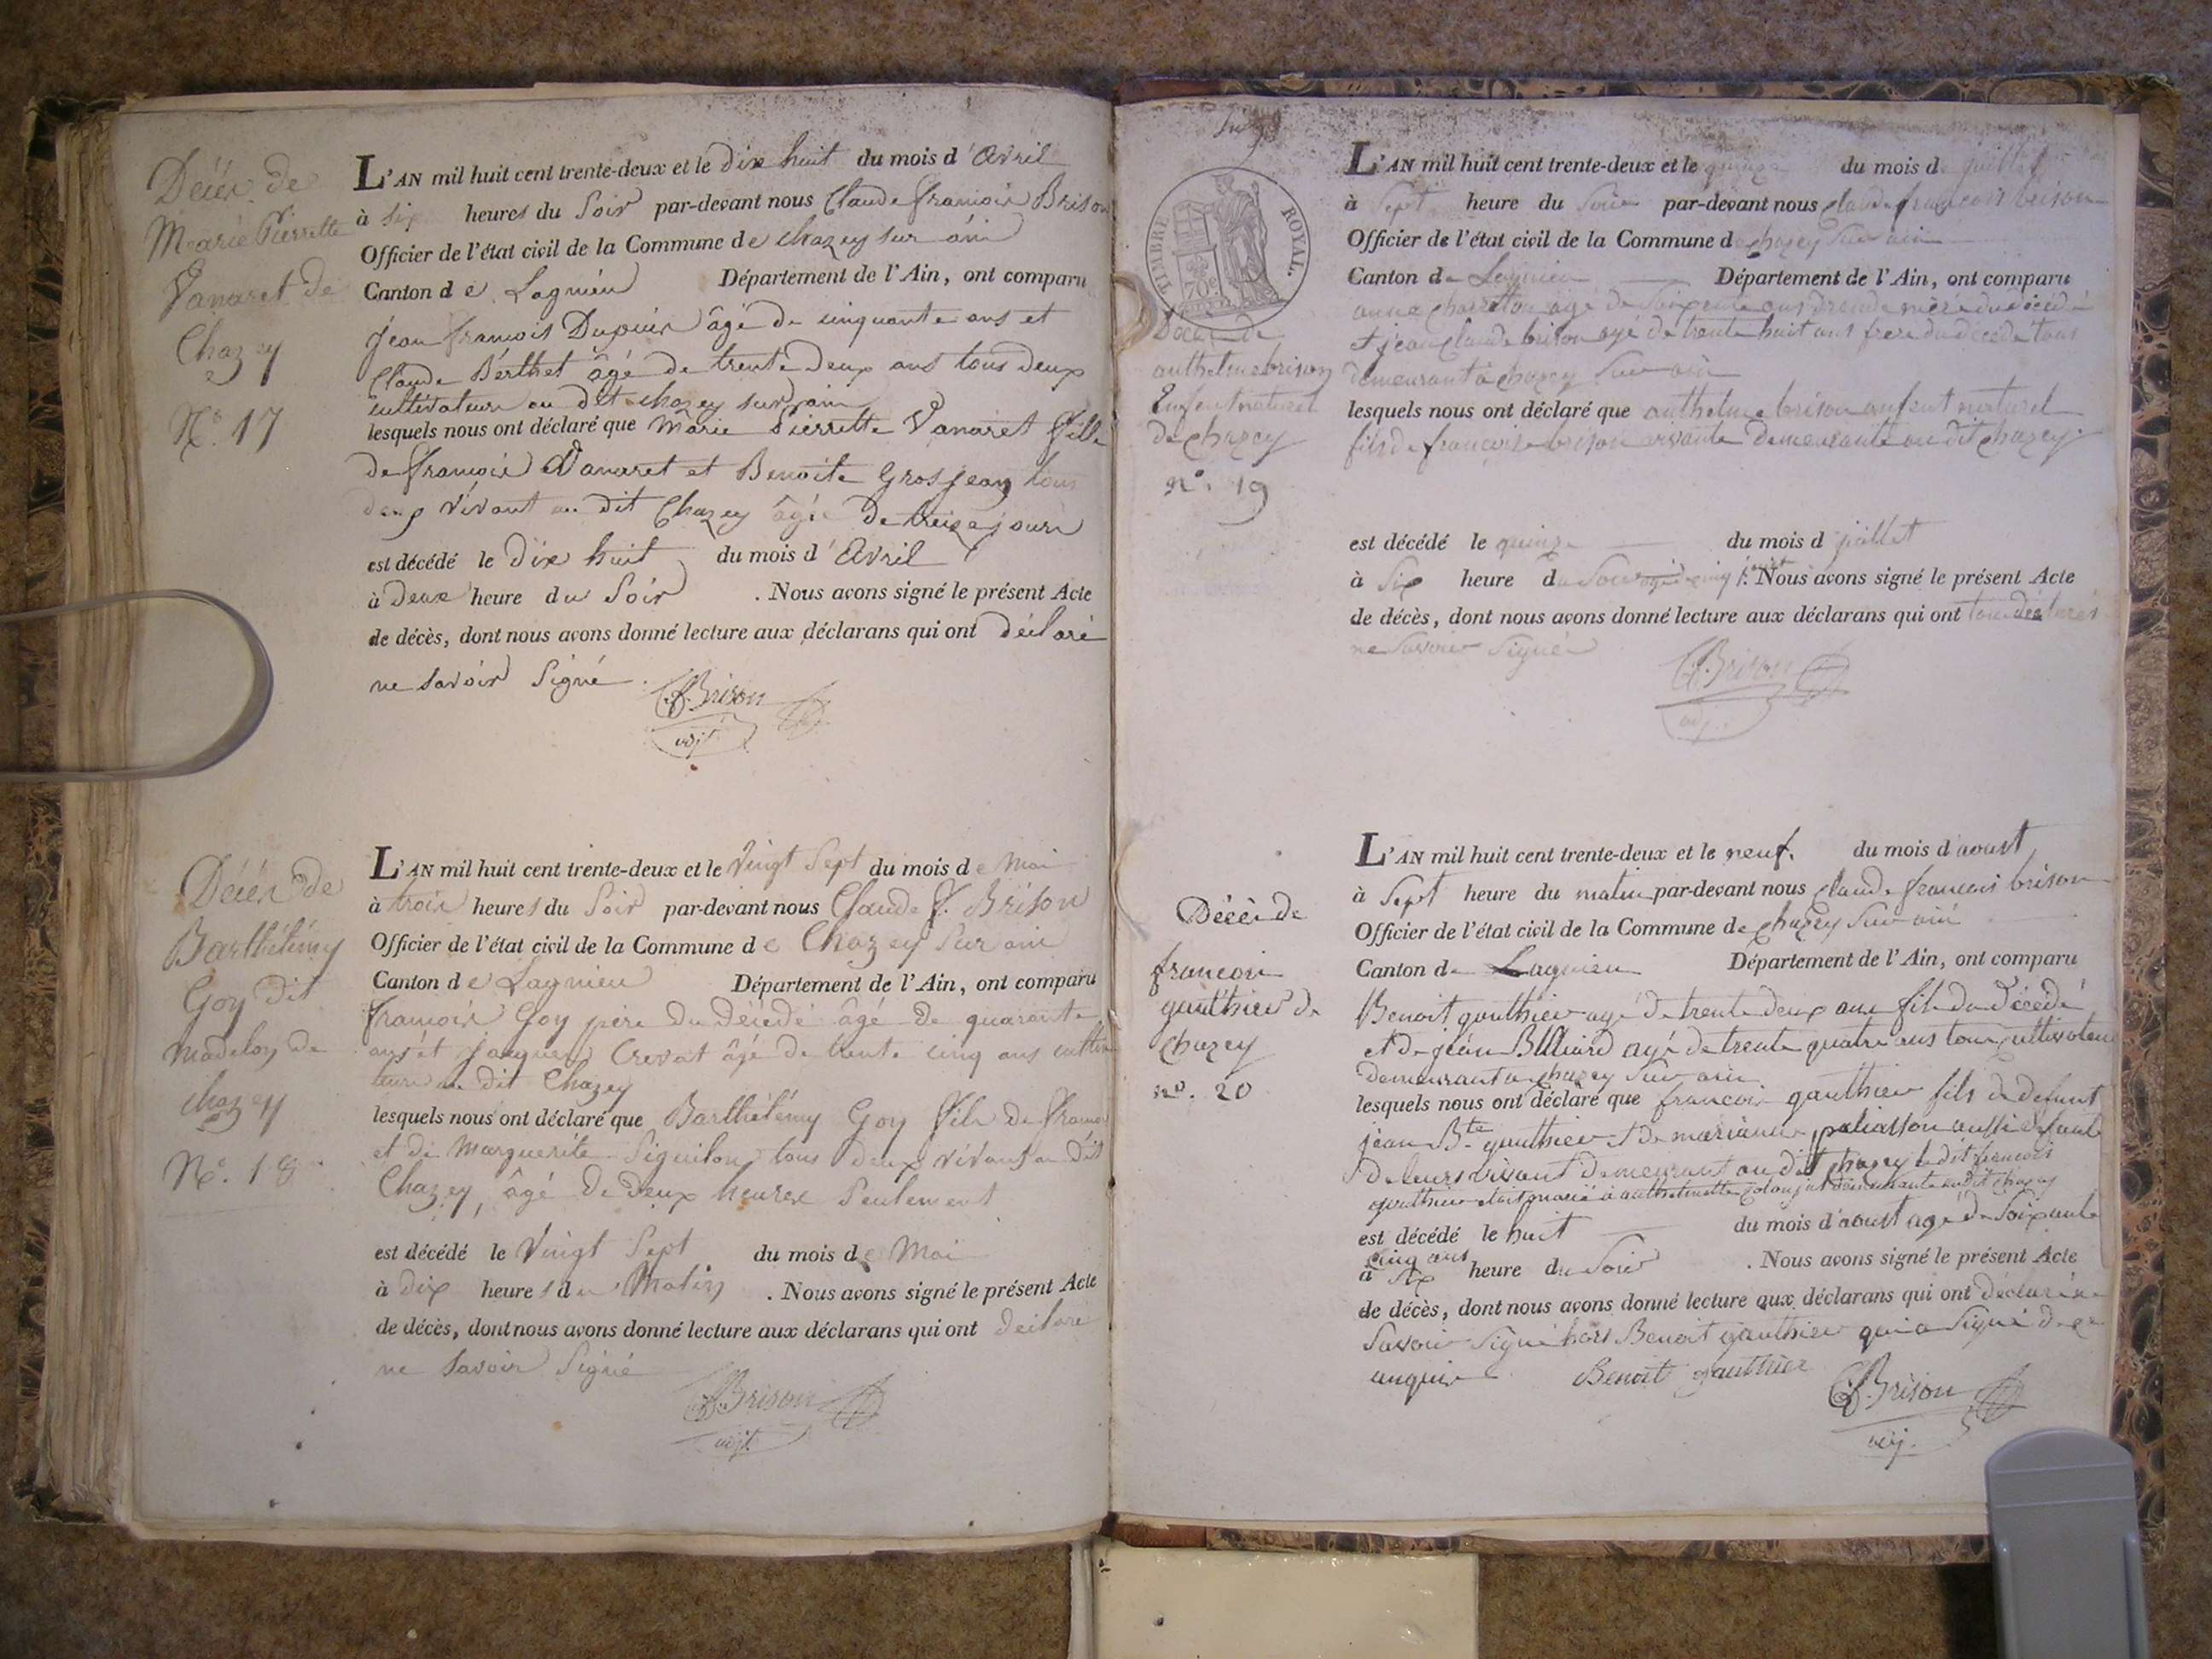 Décès de
Marie Pierrette
Vanaret de
Chazey
N.° 17
L'AN mil huit cent trente-deux et le dix huit du mois d'Avril
à six heures du Soir par-devant nous Claude francois Brison
Officier de l'état civil de la Commune de chazey sur ain
Canton de Lagnieu Département de l'Ain, ont comparu
Jean francois Dupuis âgé de cinquante ans et
Claude Berthet âgé de trente deux ans tous deux
cultivateurs au dit chazey sur ain
lesquels nous ont déclaré que Marie Pierrette Vanaret fille
de francois Vanaret et Benoite Grosjean tous
deux vivant au dit Chazey âgée de treize jours
est décédé le dix huit du mois d'Avril
à deux heure du Soir . Nous avons signé le présent Acte
de décès, dont nous avons donné lecture aux déclarans qui ont déclaré
ne savoir Signé.
C.f. Brison
adjt
Décès de
Barthélémy
Goy dit
Madelon de
chazey
N.° 18
L'AN mil huit cent trente-deux et le Vingt Sept du mois de Mai
à trois heures du Soir par-devant nous Claude f. Brison
Officier de l'état civil de la Commune de Chazey Sur ain
Canton de Lagnieu Département de l'Ain, ont comparu
francois Goy père du décédé âgé de quarante
ans et Jacques Crevat âgé de trente cinq ans cultiva
teurs au dit Chazey
lesquels nous ont déclaré que Barthélémy Goy fils de francois
et de Marguerite tous deux vivant au dit
Chazey, âgé de deux heures Seulement
est décédé le Vingt Sept du mois de Mai
à dix heures du Matin . Nous avons signé le présent Acte
de décès, dont nous avons donné lecture aux déclarans qui ont déclaré
ne Savoir Signé
C.f. Brison
adjt
TIMBRE ROYAL.
70c
Décès de
anthelme brison
Enfent naturel
de chazey
n°. 19
L'AN mil huit cent trente-deux et le quinze du mois de juillet
à Sept heure du Soir par-devant nous Claude francois brison
Officier de l'état civil de la Commune de chazey Sur ain
Canton de Lagnieu Département de l'Ain, ont comparu
anne charreton agé de Soixente ans Grande mère du décédé
et jean Claude brison agé de trente huit ans frere du décédé tous
demeurant à chazey Sur ain
lesquels nous ont déclaré que anthelme brison enfent naturel
fils de francoise brison vivante demeurante au dit chazey
est décédé le quinze du mois d juillet
à Six heure du Soir agé cinq jours. Nous avons signé le présent Acte
de décès, dont nous avons donné lecture aux déclarans qui ont tous déclarés
ne Savoir Signée
C.f. Brison
adj.
Décès de
francois
gauthier de
Chazey
n°. 20
L'AN mil huit cent trente-deux et le neuf. du mois d'aoust
à Sept heure du matin par-devant nous Claude francois brison
Officier de l'état civil de la Commune de chazey Sur ain
Canton de Lagnieu Département de l'Ain, ont comparu
Benoit gauthier agé de trente deux ans fils du décédé
et de jean Billiard agé de trente quatre ans tous cultivateurs
demeurant a chazey Sur ain
lesquels nous ont déclaré que francois gauthier fils de defunt
jean Bte gauthier et de marianne paliasson aussi defunte
de leurs vivant demeurant au dit chazey le dit francois
gauthier etait marié a anthelmette demeurante au dit chazey
est décédé le huit du mois d'aoust agé de Soixante
cinq ans
à Six heure du Soir . Nous avons signé le présent Acte
de décès, dont nous avons donné lecture aux déclarans qui ont déclaré ne
Savoir Signé hors Benoit gauthier qui a Signé de ce
enquis Benoit gauthier C.f. Brison
adj.